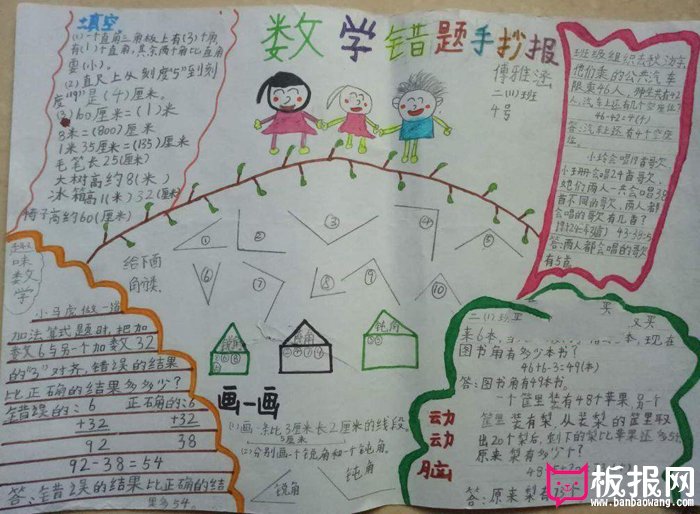 数学错题手抄报
傅雅涵
二(11)班
4号
填空
(1)一个直角三角板上有(3)个角,
有(1)个直角,其余两个角比直角
要(小)。
(2)直尺上从刻度"5"到刻
度"9"是(4)厘米。
(3)60厘米=(1)米
8米=(800)厘米
1米35厘米=(135)厘米
毛笔长25(厘米)
大树高约8(米)
冰箱高1(米)32(厘米)
椅子高约60(厘米)
班级组织去秋游,
他们乘的公共汽车
限乘46人,师生共有42
人,汽车上还有几个空座位?
46-42=4(个)
答:汽车上还有4个空座
位。
小玲会唱19首歌
小玥会唱24首歌,
她们两人一共会唱38
首不同的歌,两人都
会唱的歌有几首?
19+24=43(首) 43-38=5
答:两人都会唱的歌
有5首
给下面
角归类
① ② ③ ④ ⑤
⑥ ⑦ ⑧ ⑨ ⑩
锐角
直角
钝角
趣味数学
小马虎做一道
加法竖式题时,把加
数6与另一个加数32
的"3"对齐,错误的结果
比正确的结果多多少?
错误的:6 正确的:6
+32 +32
92 38
92-38=54
答:错误的结果比正确的结
果多54。
画一画
(1)画一条比3厘米长2厘米的线段。
5厘米
(2)分别画一个锐角和一个钝角。
锐角
钝角
动动脑
二(1)班买
又买
来6本,
本,现在
图书角有多少本书?
46+6-3=49(本)
答:图书角有49本书。
一个筐里装有48个苹果,另一个
筐里装有梨,从装梨的筐里取
出20个梨后,剩下的梨比苹果还多5个
原来梨有多少个?
答:原来梨有73个
板报网
www.banbaowang.com